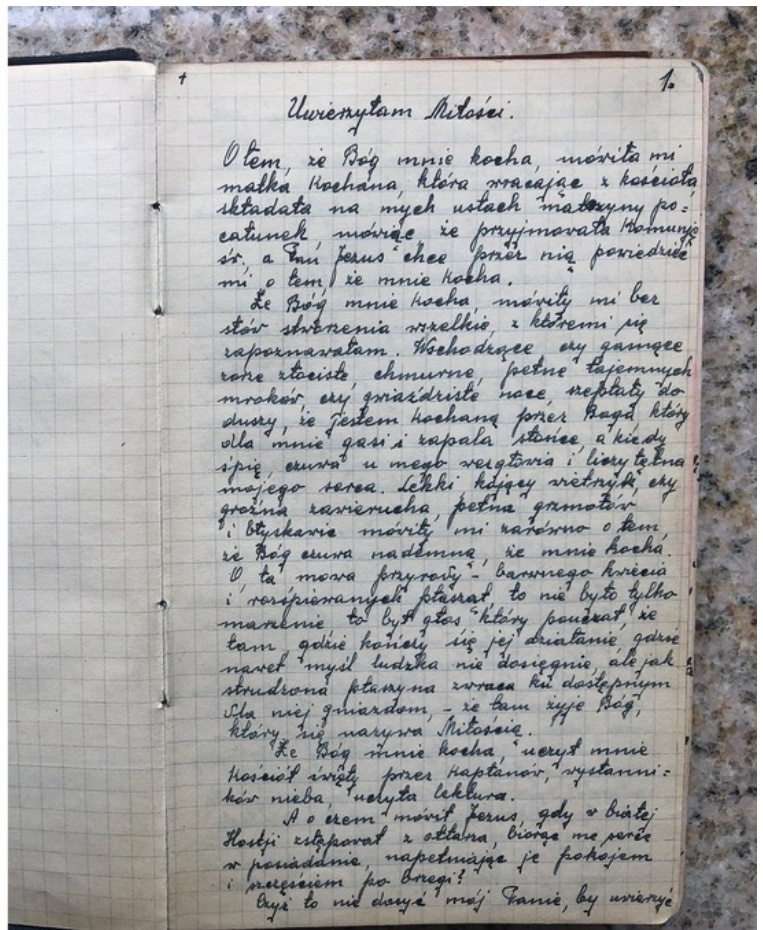 + 1.
Uwierzyłam Miłości.
O tem, że Bóg mnie kocha, mówiła mi
matka kochana, która wracając z kościoła
składała na mych ustach matczyny po=
całunek, mówiąc, że przyjmowała Komunję
św, a Pan Jezus chce przez nią powiedzieć
mi o tem, że mnie kocha.
Że Bóg mnie kocha, mówiły mi bez
słów stworzenia wszelkie, z któremi się
zapoznawałam. Wschodzące czy gasnące
zorze złociste, chmurne, pełne tajemnych
mroków, czy gwiaździste noce, szeptały do
duszy, że jestem kochaną przez Boga który
dla mnie gasi i zapala słońce, a kiedy
śpię, czuwa u mego wezgłowia i liczy tętna
mojego serca. Lekki kojący wietrzyk, czy
groźna zawierucha, pełna grzmotów
i błyskawic mówiły mi zarówno o tem,
że Bóg czuwa nademną, że mnie kocha.
O, ta mowa przyrody – barwnego kwiecia
i rozśpiewanych ptasząt to nie było tylko
marzenie to był głos który pouczał, że
tam, gdzie kończy się jej działanie, gdzie
nawet myśl ludzka nie dosięgnie, ale jak
strudzona ptaszyna zwraca ku dostępnym
dla niej gniazdom, – że tam żyje Bóg,
który się nazywa Miłością.
Że Bóg mnie kocha, uczył mnie
Kościół święty przez kapłanów, wysłanni=
ków nieba, uczyła lektura.
A o czem mówił Jezus, gdy w białej
Hostji zstępował z ołtarza, biorąc me serce
w posiadanie, napełniając je pokojem
i szczęściem po brzegi?
Czyż to nie dosyć mój Panie, by uwierzyć